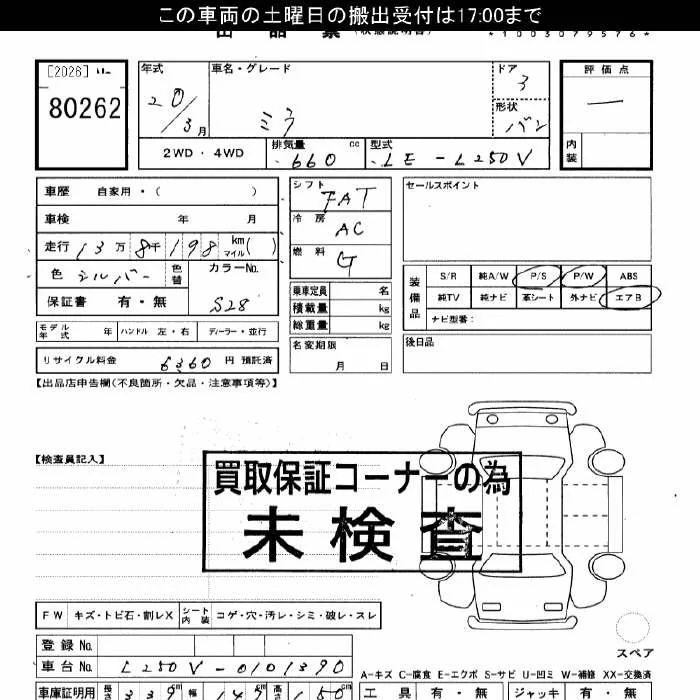 この車両の土曜日の搬出受付は17:00まで
出品票 (状態説明書) *1003079576*
[2026]
80262
年式 車名・グレード ドア 評価点
20/3月 ミラ 3 ー
形状 バン
内装
2WD・4WD 排気量 660 cc 型式 LE-L250V
車歴 自家用・( )
車検 年 月
走行 13万8千198 km マイル ( )
色 シルバー 色替 カラーNo.
保証書 有・無 S28
シフト FAT
冷房 AC
燃料 G
乗車定員 名
積載量 kg
総重量 kg
セールスポイント
装備品 S/R 純A/W P/S P/W ABS
純TV 純ナビ 革シート 外ナビ エアB
ナビ型番:
モデル年式 年 ハンドル 左・右 ディーラー・並行
リサイクル料金 6360 円 預託済
名変期限 月 日
後日品
【出品店申告欄(不良箇所・欠品・注意事項等)】
【検査員記入】
買取保証コーナーの為
未検査
FW キズ・トビ石・割レX シート内装 コゲ・穴・汚レ・シミ・破レ・スレ
スペア
登録No.
車台No. L250V-0101390
A-キズ C-腐食 E-エクボ S-サビ U-凹ミ W-補修 XX-交換済
車庫証明用 長さ 339 cm 幅 147 cm 高さ 150 cm 工具 有・無 ジャッキ 有・無